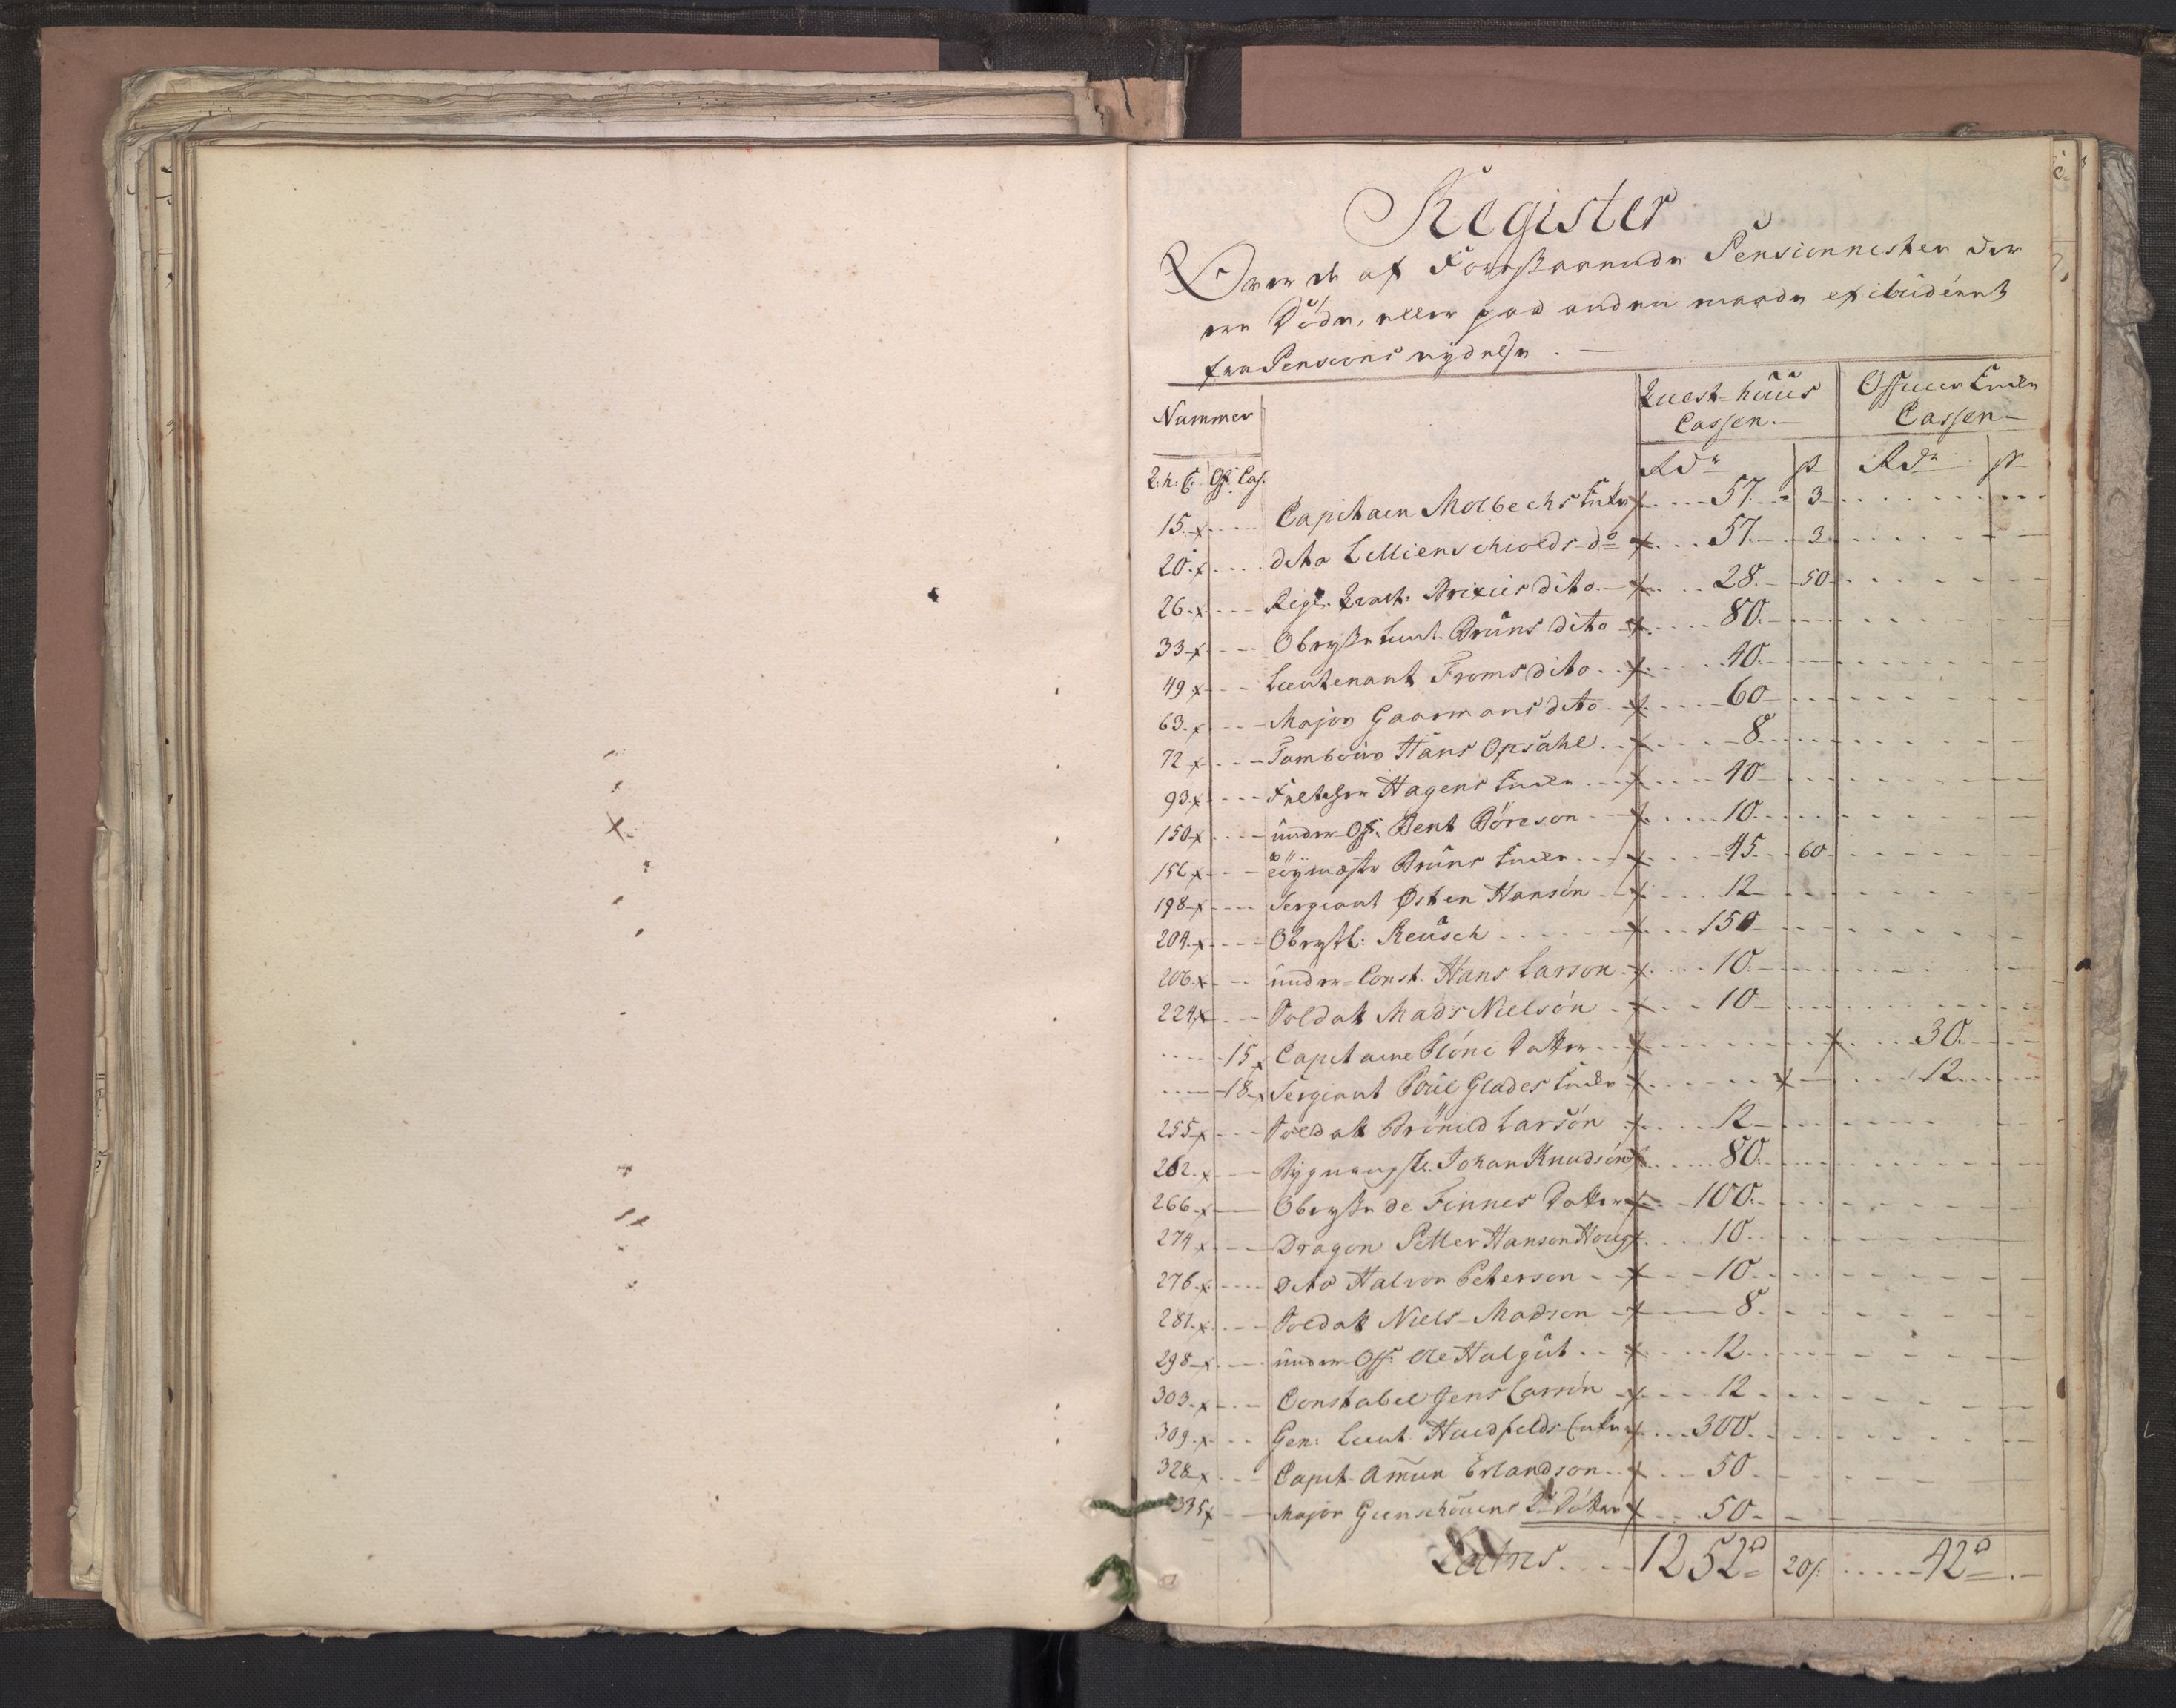 Register
Over de af Forestaaende Pensionnister der
ere Döde, eller paa anden maade excluderet
fra Pensions nydelse.
Nummer
Quest-huus Cassen.
Officeer Enke Cassen
Q:h:C: Of. Cas.
Rdr ß Rdr ß
15. x Capitaen Molbechs Enke x 57. 3
20. x dito Lillienschiolds do x 57. 3
26. x Regts. Qvart: Brixeis dito x 28. 50
33 x Obryste Lieut. Bruns dito x 80.
49 x Lieutenant Froms dito x 40.
63. x Major Gaarmans dito x 60
72 x Tambour Hans Opsahl x 8
93. x Feltskier Hagens Enke x 40
150 x under Off. Bent Böreson x 10.
156 x Töymester Bruns Enke x 45. 60
198 x Sergeant Østen Hansen x 12
204. x Obrystl: Reusch x 150
206. x under-Const. Hans Larson x 10.
224. x Soldat Mads Nielsön x 10
15 x Capitaine Plöns Datter x x 30.
18. x Sergeant Poul Glades Enke x x 12
255 x Soldat Brönild Larsön x 12
262. x Bygningsk. Johan Knudsön x 80.
266. x Obryste de Finnes Datter x 100.
274 x Dragon Petter Hansen Houg x 10.
276. x dito Halvor Peterson x 10.
281. x Soldat Niels Madsen x 8.
298 x under Off. Ole Halgut x 12.
303. x Constabel Jens Larsen x 12
309. x Gen: Lieut. Huidfelds Enke x 300.
328 x Capit. Amun Erlandson x 50
335 x Major Geenschouens 2de Döttre x 50
Latres 1252 rd 20 ß 42 rd